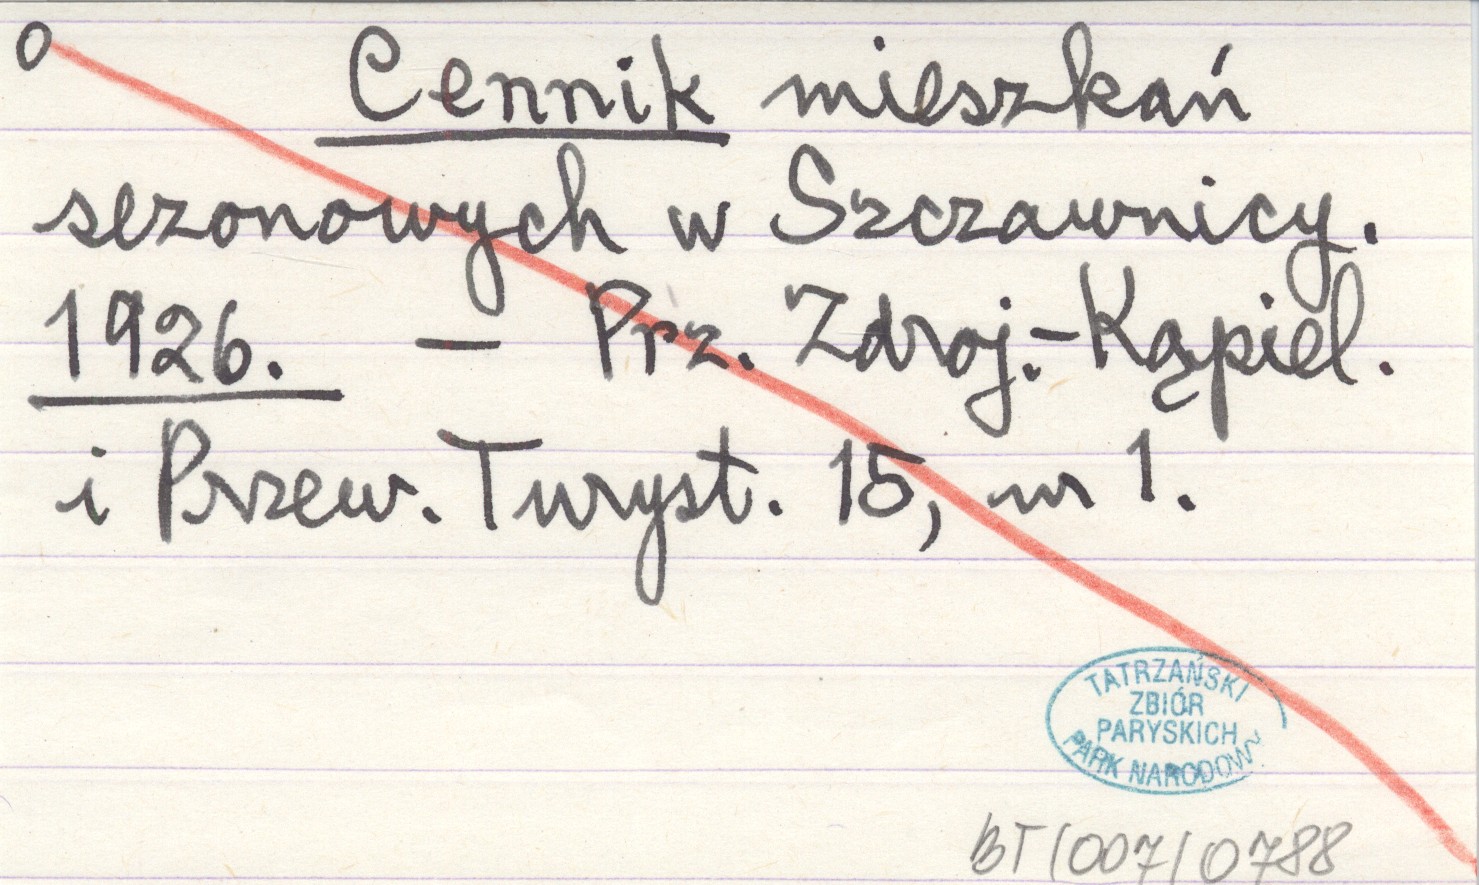 O Cennik mieszkań
sezonowych w Szczawnicy.
1926. — Prz. Zdroj.-Kąpiel.
i Przew. Turyst. 15, nr 1.
TATRZAŃSKI
ZBIÓR
PARYSKICH
PARK NARODOWY
BT/007/0788